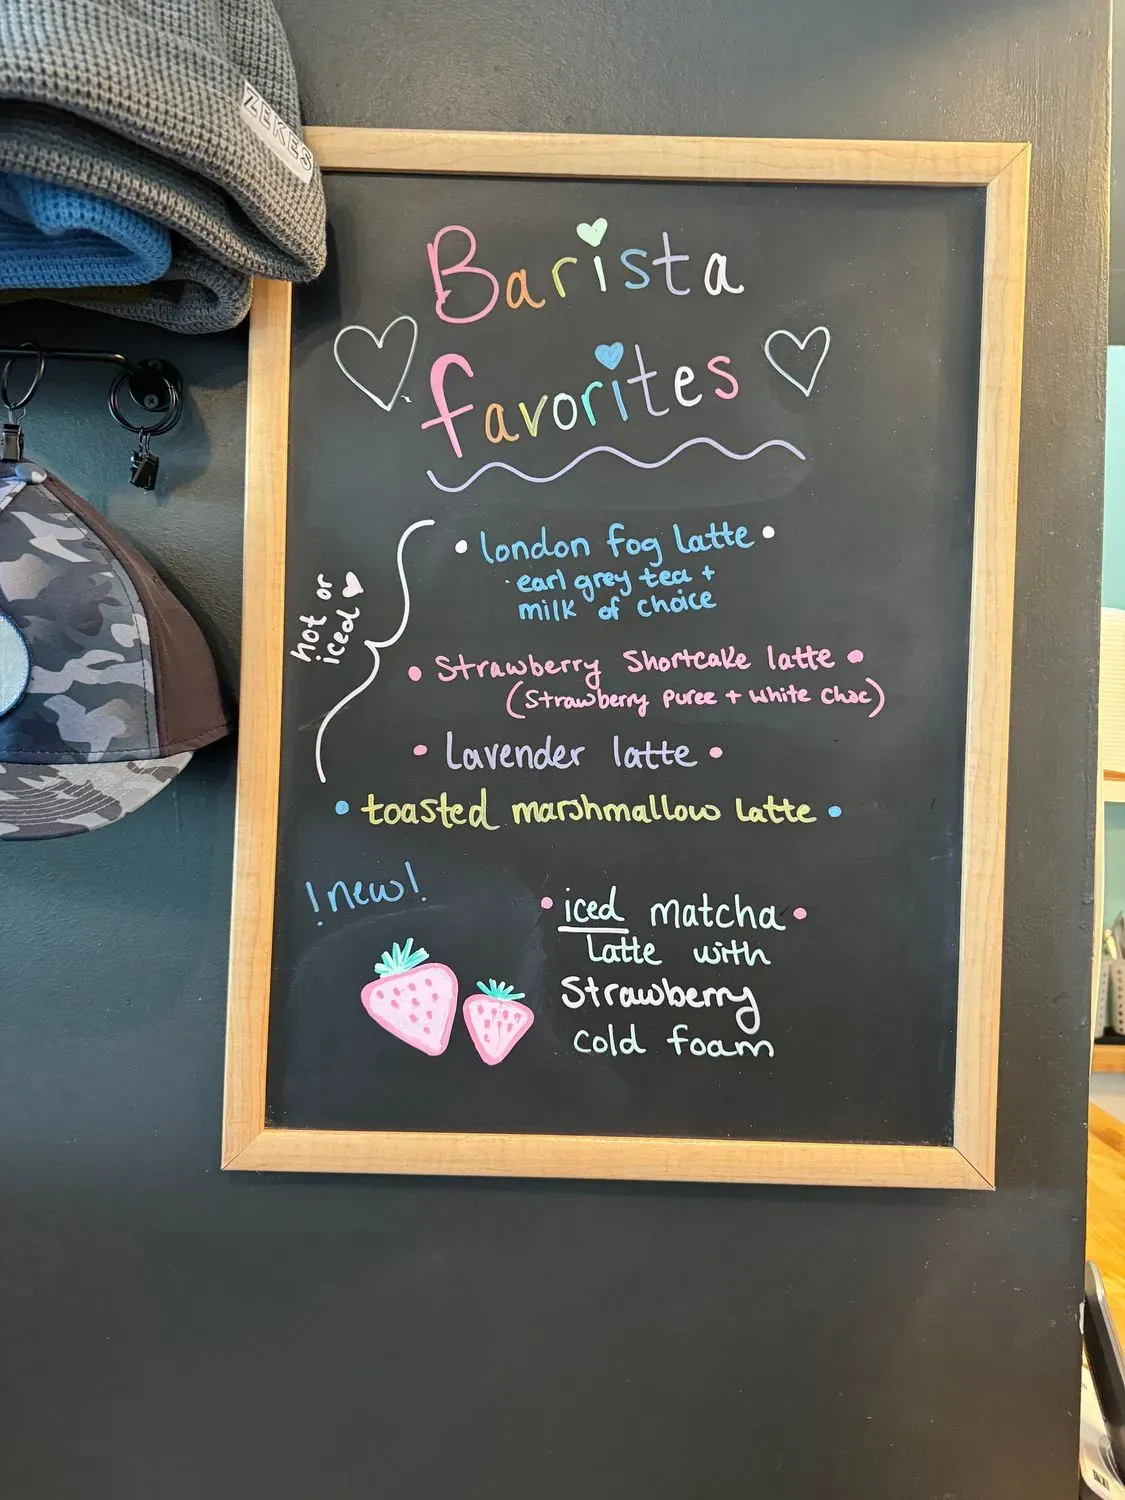 ZEKES
Barista
favorites
hot or
iced
london fog latte
earl grey tea +
milk of choice
Strawberry Shortcake latte
(Strawberry Puree + White Choc)
lavender latte
toasted marshmallow latte
!new!
iced matcha
latte with
Strawberry
cold foam